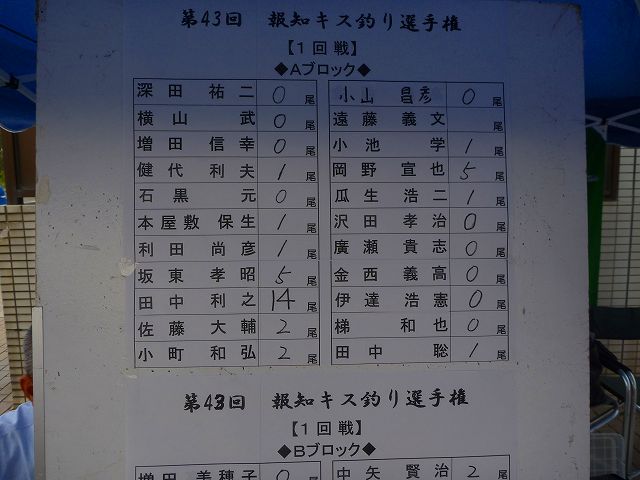 第43回 報知キス釣り選手権
【1回戦】
◆Aブロック◆
深田 祐二 0尾 小山 昌彦 0尾
横山 武 0尾 遠藤 義文 尾
増田 信幸 0尾 小池 学 1尾
健代 利夫 1尾 岡野 宣也 5尾
石黒 元 0尾 瓜生 浩二 1尾
本屋敷 保生 1尾 沢田 孝治 0尾
利田 尚彦 1尾 廣瀬 貴志 0尾
坂東 孝昭 5尾 金西 義高 0尾
田中 利之 14尾 伊達 浩憲 0尾
佐藤 大輔 2尾 梯 和也 0尾
小町 和弘 2尾 田中 聡 1尾
第43回 報知キス釣り選手権
【1回戦】
◆Bブロック◆
増田 美穂子 0尾 中矢 賢治 2尾